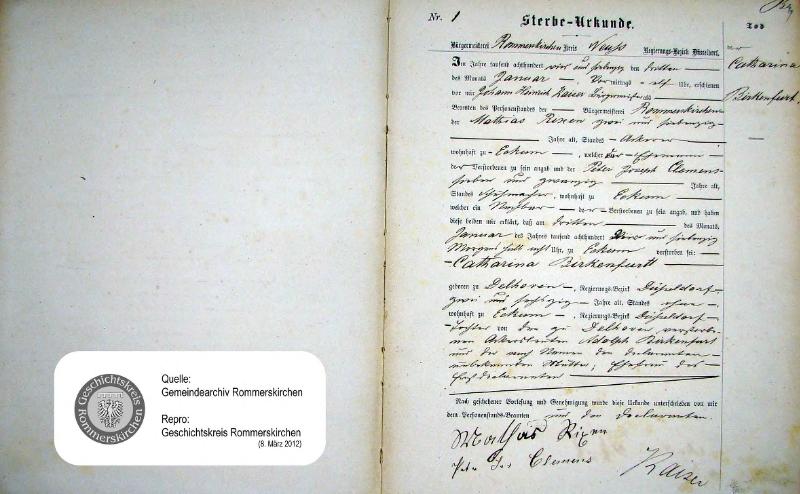 Nr. 1
Sterbe-Urkunde.
Bürgermeisterei Rommerskirchen Kreis Neuss Regierungs-Bezirk Düsseldorf.
Im Jahre tausend achthundert vier und siebenzig den dritten
des Monats Januar Vormittags elf Uhr, erschienen
vor mir Johann Heinrich Bürgermeister als
Beamten des Personenstandes der Bürgermeisterei Rommerskirchen
der Mathias Rixen zwei und siebenzig
Jahre alt, Standes Ackerer
wohnhaft zu Eckum, welcher der Ehemann
der Verstorbenen zu sein angab und der Peter Joseph Clemens
sieben und zwanzig Jahre alt,
Standes Schuhmacher, wohnhaft zu Eckum
welcher ein Nachbar der Verstorbenen zu sein angab, und haben
diese beiden mir erklärt, daß am dritten des Monats,
Januar des Jahres tausend achthundert vier und siebenzig
Morgens halb acht Uhr, zu Eckum verstorben sei:
Catharina Birkenfurtt
geboren zu Delhoven, Regierungs-Bezirk Düsseldorf
zwei und sechszig Jahre alt, Standes ohne,
wohnhaft zu Eckum, Regierungs-Bezirk Düsseldorf
Tochter von den zu Delhoven verstorbe-
nen Ackersleuten Adolph Birkenfurt
und der nach Namen den Declaranten
unbekannten Mutter, Ehefrau des
Nach geschehener Vorlesung und Genehmigung wurde diese Urkunde unterschrieben von mir
dem Personenstands-Beamten und den Declaranten.
Mathias Rixen
Peter Jos Clemens
Kaiser
Tod
der
Catharina
Birkenfurt
Geschichtskreis
Rommerskirchen
Quelle:
Gemeindearchiv Rommerskirchen
Repro:
Geschichtskreis Rommerskirchen
(8. März 2012)